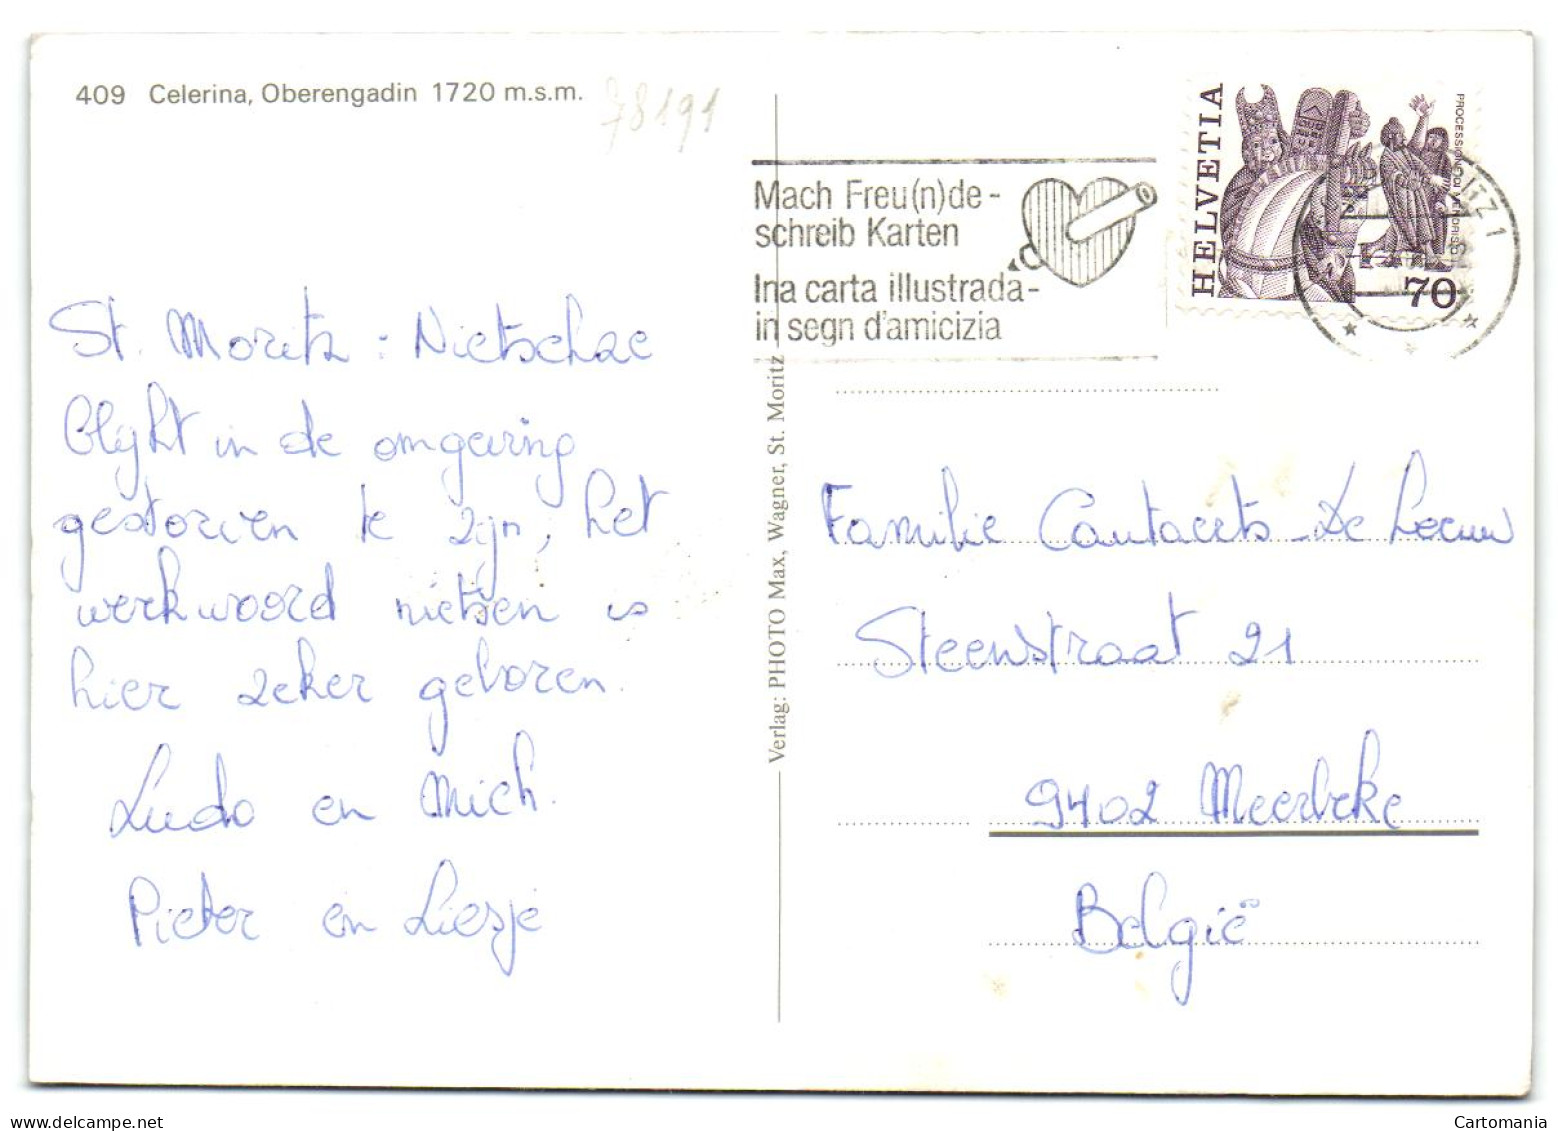 409 Celerina, Oberengadin 1720 m.s.m.
78191
Mach Freu(n)de-
schreib Karten
Ina carta illustrada-
in segn d'amicizia
HELVETIA
70
St. Moritz : Nietschae
blijkt in de omgeving
gestorven te zijn, het
werkwoord nietsen is
hier zeker geboren.
Ludo en Mich.
Pieter en Liesje
Verlag: PHOTO Max, Wagner, St. Moritz
Familie Cautaerts-De Leeuw
Steenstraat 21
9402 Meerbeke
België
www.delcampe.net
Cartomania